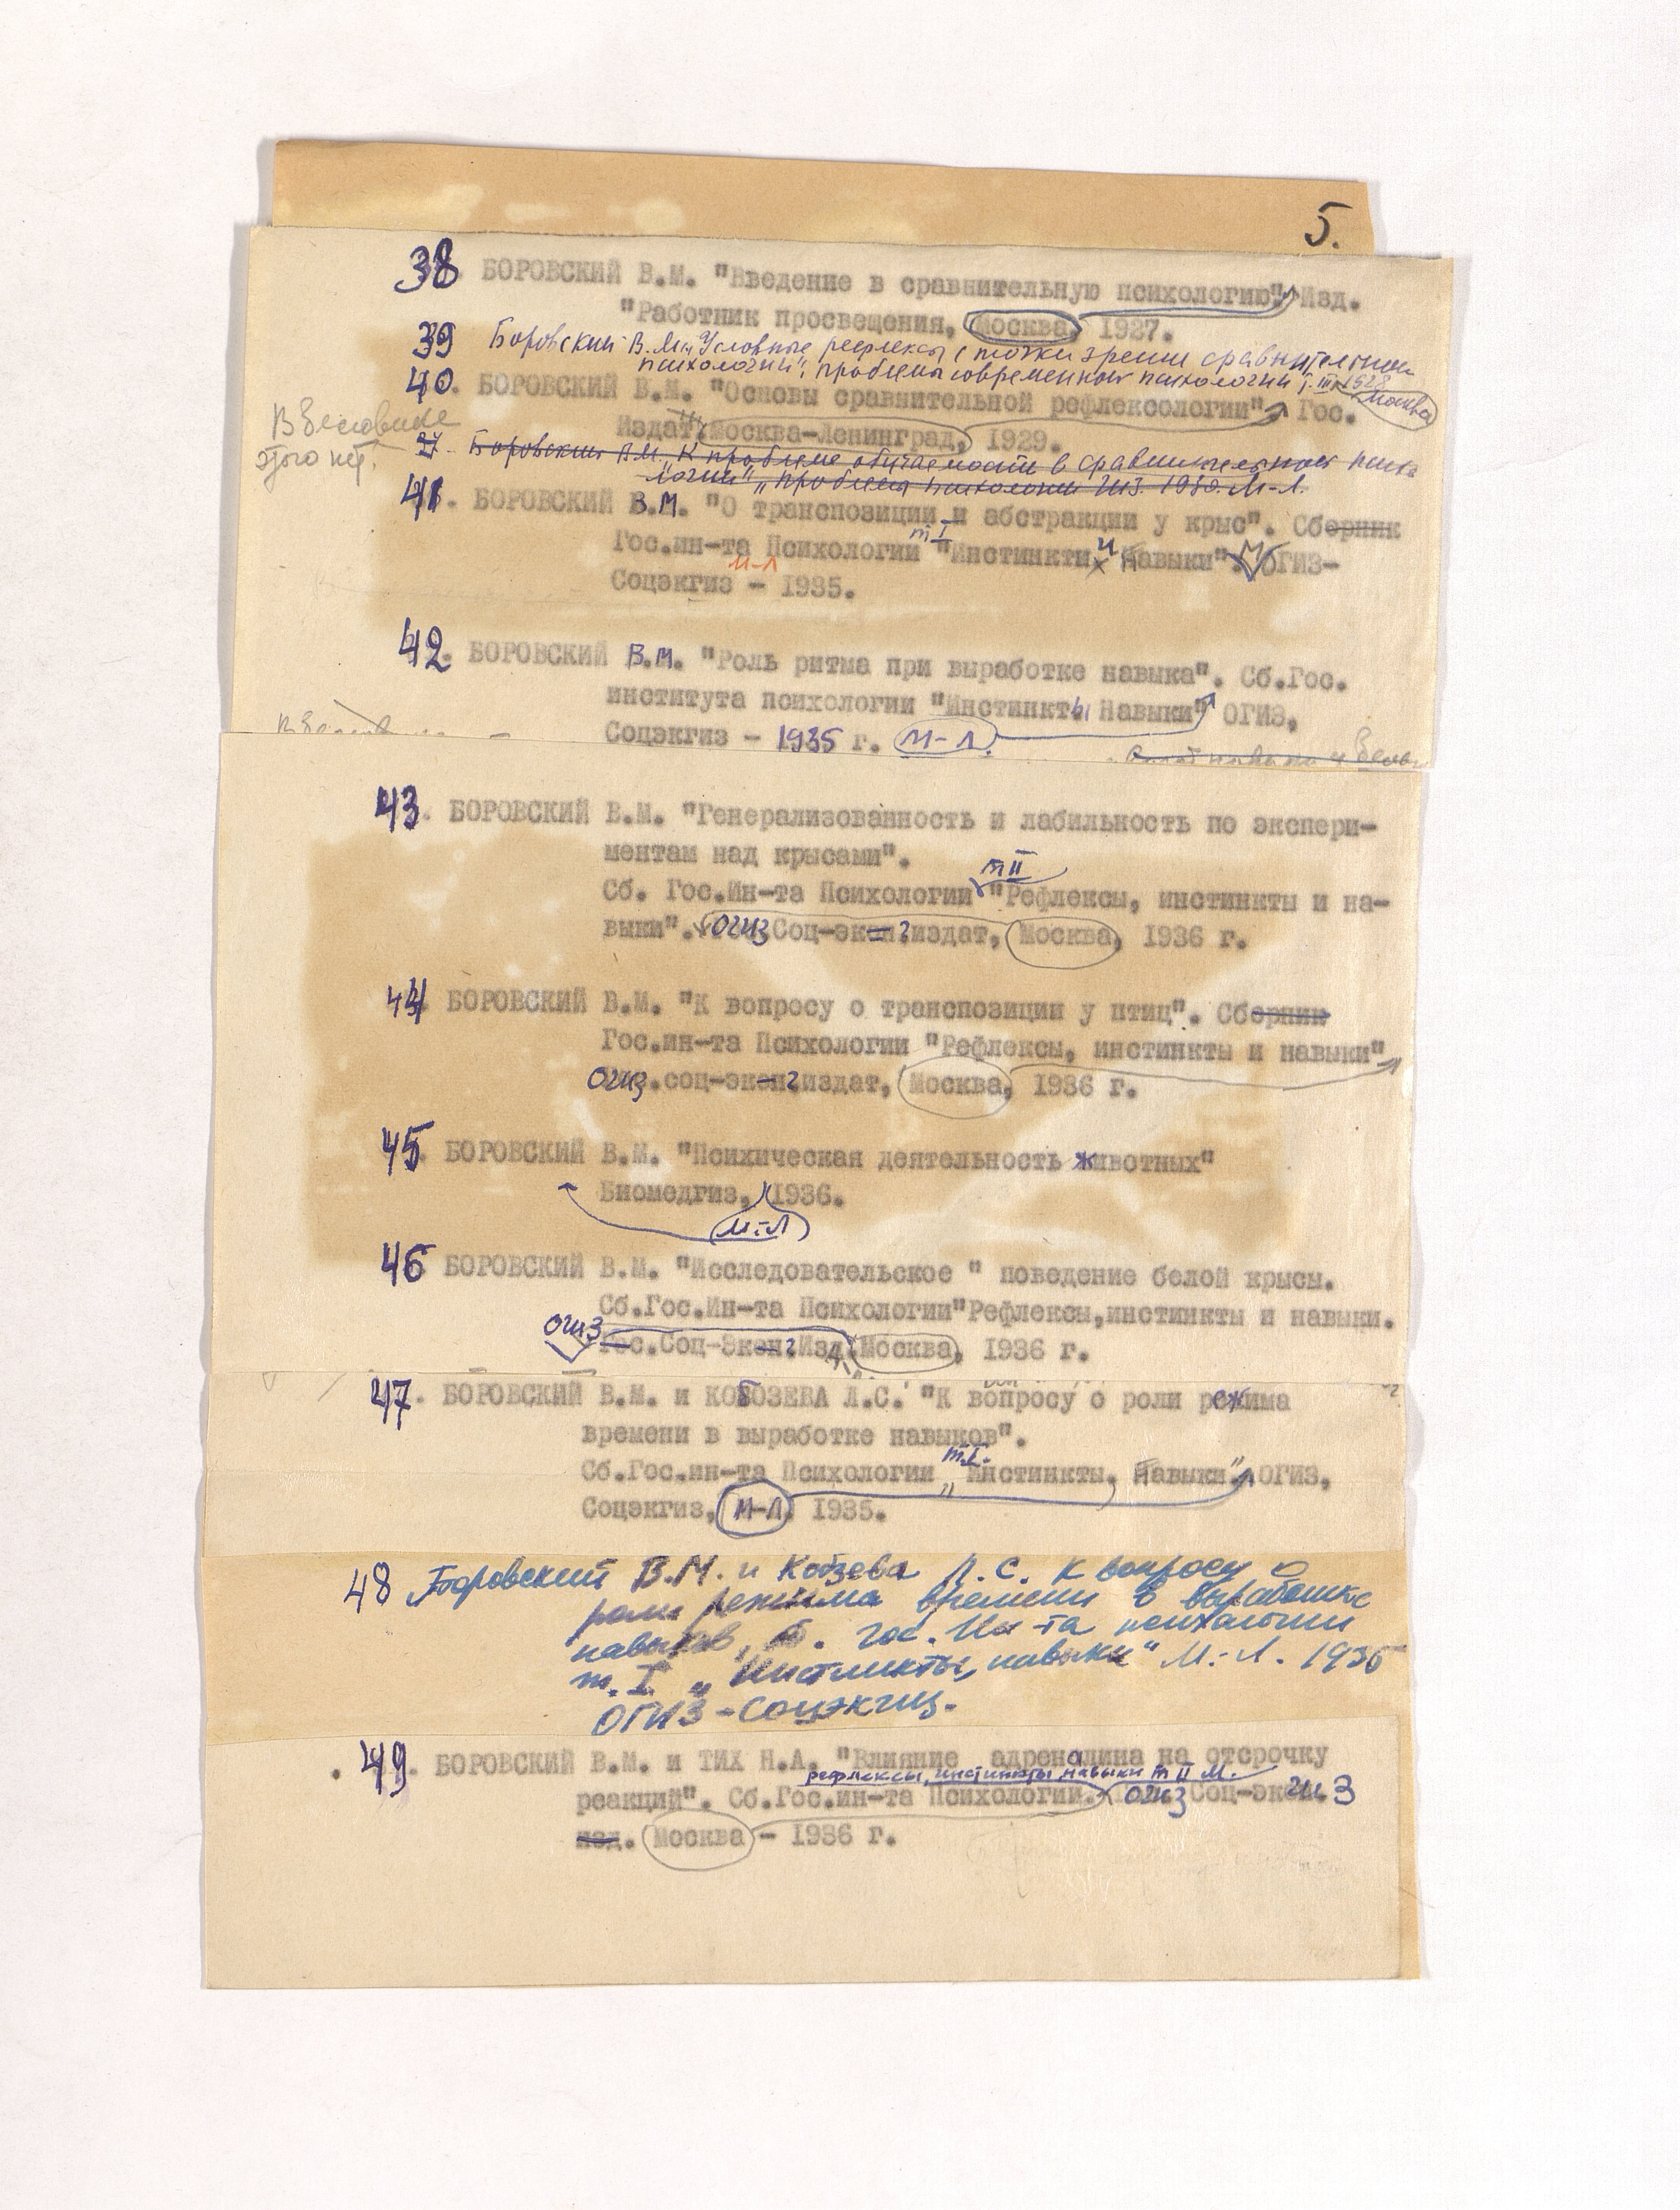 5.
38 БОРОВСКИЙ В.М. "Введение в сравнительную психологию". Изд.
"Работник просвещения, Москва, 1927.
39 Боровский В.М. Условные рефлексы с точки зрения сравнительной
психологии". проблемы современной психологии т. III 1928
Москва
40. БОРОВСКИЙ В.М. "Основы сравнительной рефлексологии". Гос.
Издат. Москва-Ленинград, 1929.
этого нет.
27. Боровский В.М. К проблеме обучаемости в сравнительной психо
логии" „проблемы психологии 1930. М-Л.
41. БОРОВСКИЙ В.М. "О транспозиции и абстракции у крыс". Сборник
т I
Гос.ин-та Психологии "Инстинкты и Навыки". ОГИЗ-
М-Л
Соцэкгиз - 1935.
42. БОРОВСКИЙ В.М. "Роль ритма при выработке навыка". Сб.Гос.
института психологии "Инстинкты Навыки" ОГИЗ,
Соцэкгиз - 1935 г. М-Л.
43. БОРОВСКИЙ В.М. "Генерализованность и лабильность по экспери-
ментам над крысами".
т II
Сб. Гос.Ин-та Психологии "Рефлексы, инстинкты и на-
выки". ОГИЗ Соц-экон.издат, Москва, 1936 г.
44 БОРОВСКИЙ В.М. "К вопросу о транспозиции у птиц". Сборник
Гос.ин-та Психологии "Рефлексы, инстинкты и навыки"
ОГИЗ.соц-экон.издат, Москва, 1936 г.
45. БОРОВСКИЙ В.М. "Психическая деятельность животных"
Биомедгиз, 1936.
М.-Л
46 БОРОВСКИЙ В.М. "Исследовательское " поведение белой крысы.
Сб.Гос.Ин-та Психологии"Рефлексы,инстинкты и навыки.
ОГИЗ
Гос.Соц-Экон.Изд. Москва, 1936 г.
47. БОРОВСКИЙ В.М. и КОБОЗЕВА Л.С. "К вопросу о роли режима
времени в выработке навыков".
т.I.
Сб.Гос.ин-та Психологии „Инстинкты, Навыки" ОГИЗ,
Соцэкгиз, М-Л 1935.
48 Боровский В.М. и Кобзева Л.С. К вопросу о
роли режима времени в выработке
навыков, Сб. Гос. Ин-та психологии
т. I „Инстинкты, навыки" М.-Л. 1935
ОГИЗ-Соцэкгиз.
49. БОРОВСКИЙ В.М. и ТИХ Н.А. "Влияние адреналина на отсрочку
рефлексы, инстинкты, навыки т II М.
реакций". Сб.Гос.ин-та Психологии. ОГИЗ Соц-экгиз
изд. Москва - 1936 г.